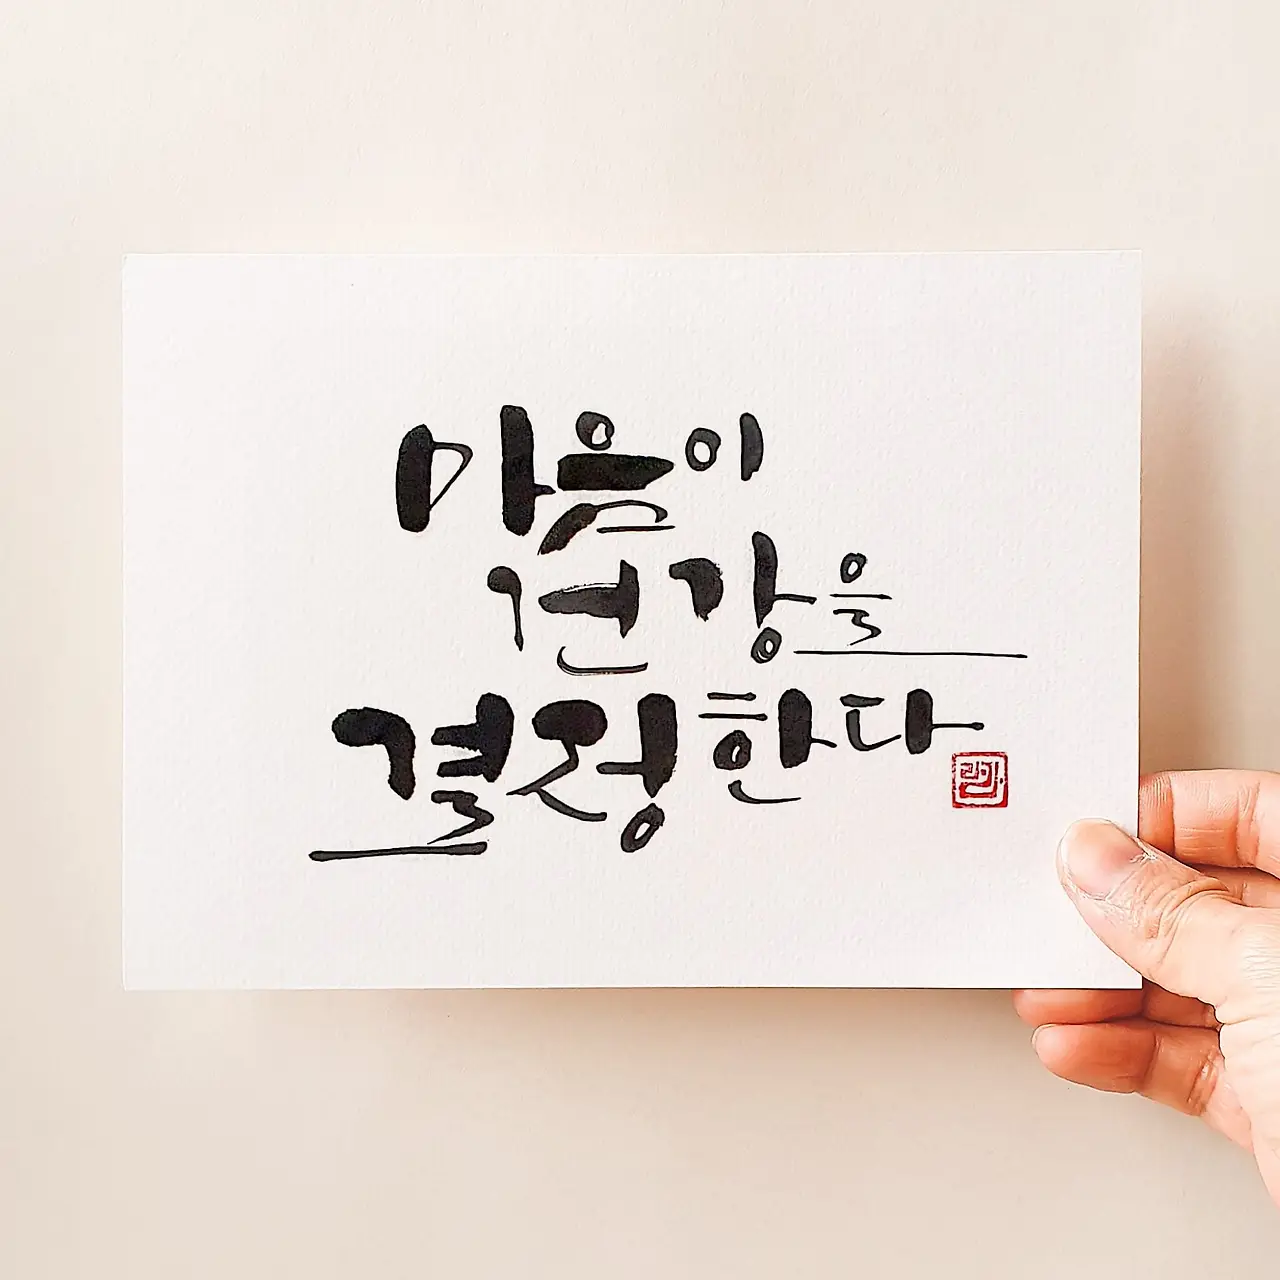 마음이
건강을
결정한다